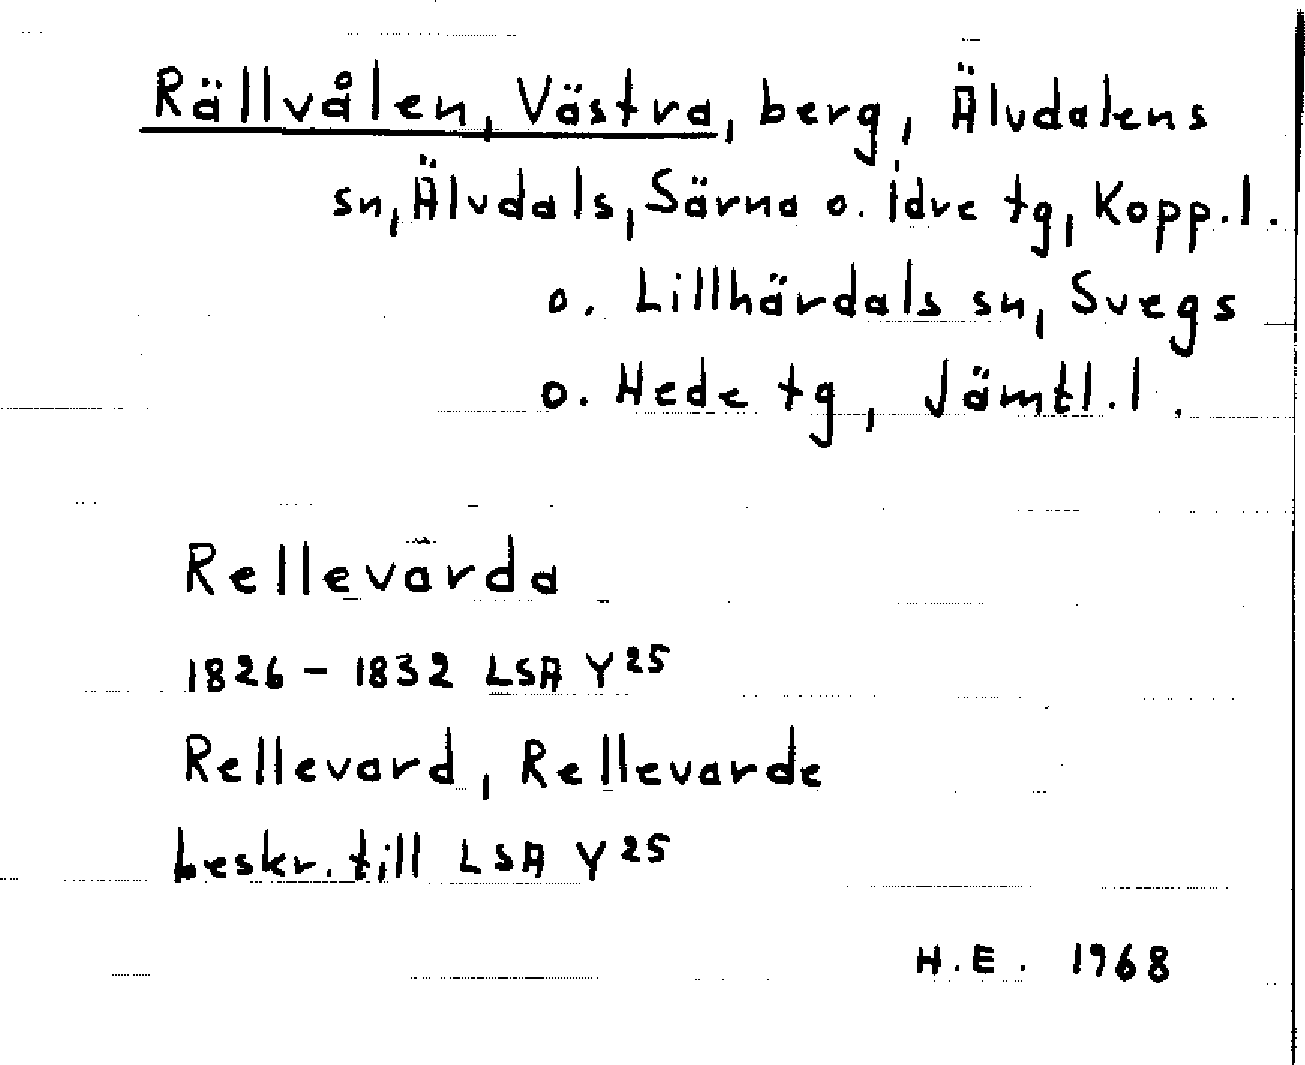 Rällvålen, Västra, berg, Älvdalens
sn, Älvdals, Särna o. Idre tg, Kopp.l.
o. Lillhärdals sn, Svegs
o. Hede tg, Jämtl.l.
Rellevärda
1826-1832 LSA Y25
Rellevard, Rellevarde
beskr. till LSA Y25
H.E. 1968